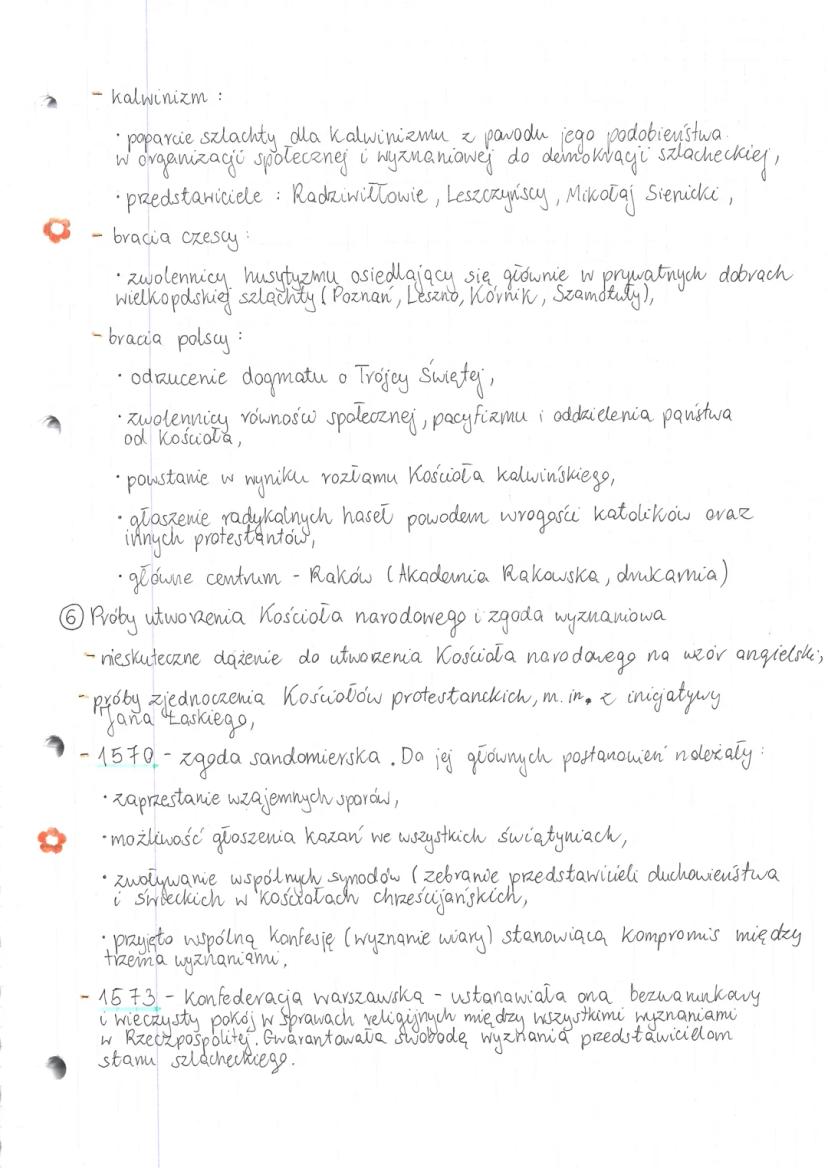 - kalwinizm :
· poparcie szlachty dla kalwinizmu z powodu jego podobieństwa
w organizacji społecznej i wyznaniowej do demokracji szlacheckiej,
· przedstawiciele : Radziwiłłowie, Leszczyńscy, Mikołaj Sienicki,
- bracia czescy:
· zwolennicy husytyzmu osiedlający się głównie w prywatnych dobrach
wielkopolskiej szlachty (Poznań, Leszno, Kórnik, Szamotuły),
- bracia polscy :
· odrzucenie dogmatu o Trójcy Świętej,
· zwolennicy równości społecznej, pacyfizmu i oddzielenia państwa
od Kościoła,
· powstanie w wyniku rozłamu Kościoła kalwińskiego,
· głoszenie radykalnych haseł powodem wrogości katolików oraz
innych protestantów,
· główne centrum - Raków (Akademia Rakowska, drukarnia)
⑥ Próby utworzenia Kościoła narodowego i zgoda wyznaniowa
- nieskuteczne dążenie do utworzenia Kościoła narodowego na wzór angielski,
- próby zjednoczenia Kościołów protestanckich, m. in. z inicjatywy
Jana Łaskiego,
- 1570 - zgoda sandomierska. Do jej głównych postanowień należały :
· zaprzestanie wzajemnych sporów,
· możliwość głoszenia kazań we wszystkich świątyniach,
· zwoływanie wspólnych synodów (zebranie przedstawicieli duchowieństwa
i świeckich w Kościołach chrześcijańskich,
· przyjęto wspólną konfesję (wyznanie wiary) stanowiącą kompromis między
trzema wyznaniami,
- 1573 - konfederacja warszawska - ustanawiała ona bezwarunkowy
i wieczysty pokój w sprawach religijnych między wszystkimi wyznaniami
w Rzeczpospolitej. Gwarantowała swobodę wyznania przedstawicielom
stanu szlacheckiego.